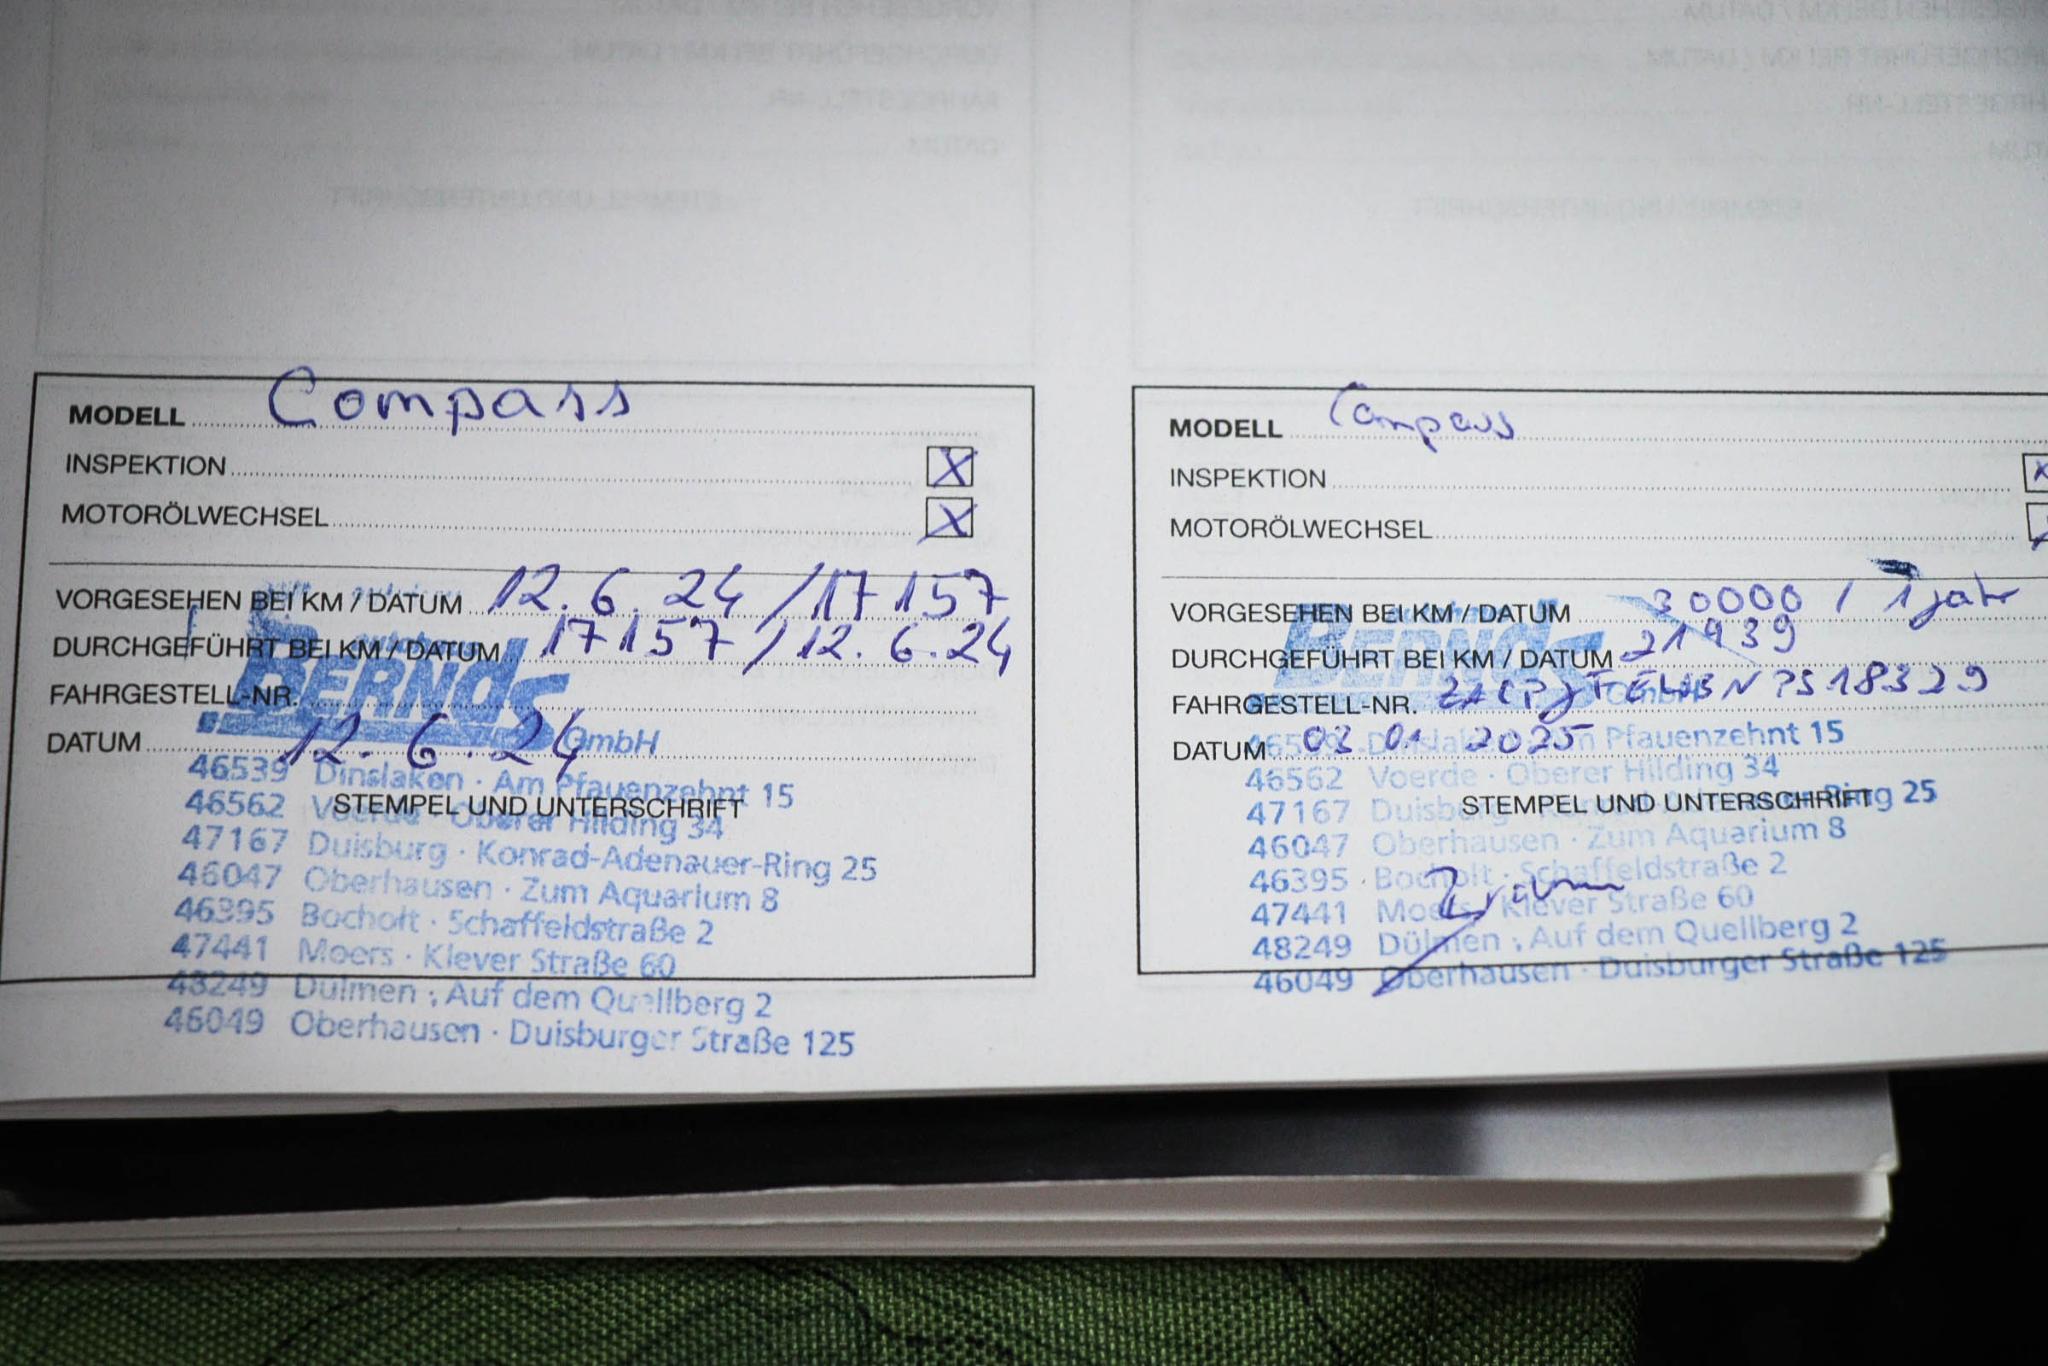 MODELL Compass
INSPEKTION X
MOTORÖLWECHSEL X
VORGESEHEN BEI KM / DATUM 12.6.24 / 17157
DURCHGEFÜHRT BEI KM / DATUM 17157 / 12.6.24
FAHRGESTELL-NR.
DATUM 12.6.24
autohaus
BERNDS
GmbH
46539 Dinslaken · Am Pfauenzehnt 15
STEMPEL UND UNTERSCHRIFT
46562 Voerde · Oberer Hilding 34
47167 Duisburg · Konrad-Adenauer-Ring 25
46047 Oberhausen · Zum Aquarium 8
46395 Bocholt · Schaffeldstraße 2
47441 Moers · Klever Straße 60
48249 Dülmen · Auf dem Quellberg 2
46049 Oberhausen · Duisburger Straße 125
MODELL Compass
INSPEKTION X
MOTORÖLWECHSEL
VORGESEHEN BEI KM / DATUM 30000 / 1 Jahr
DURCHGEFÜHRT BEI KM / DATUM 21939
FAHRGESTELL-NR.
DATUM 03 01 2025
autohaus
BERNDS
GmbH
46539 Dinslaken · Am Pfauenzehnt 15
46562 Voerde · Oberer Hilding 34
STEMPEL UND UNTERSCHRIFT
47167 Duisburg · Konrad-Adenauer-Ring 25
46047 Oberhausen · Zum Aquarium 8
46395 Bocholt · Schaffeldstraße 2
47441 Moers · Klever Straße 60
48249 Dülmen · Auf dem Quellberg 2
46049 Oberhausen · Duisburger Straße 125